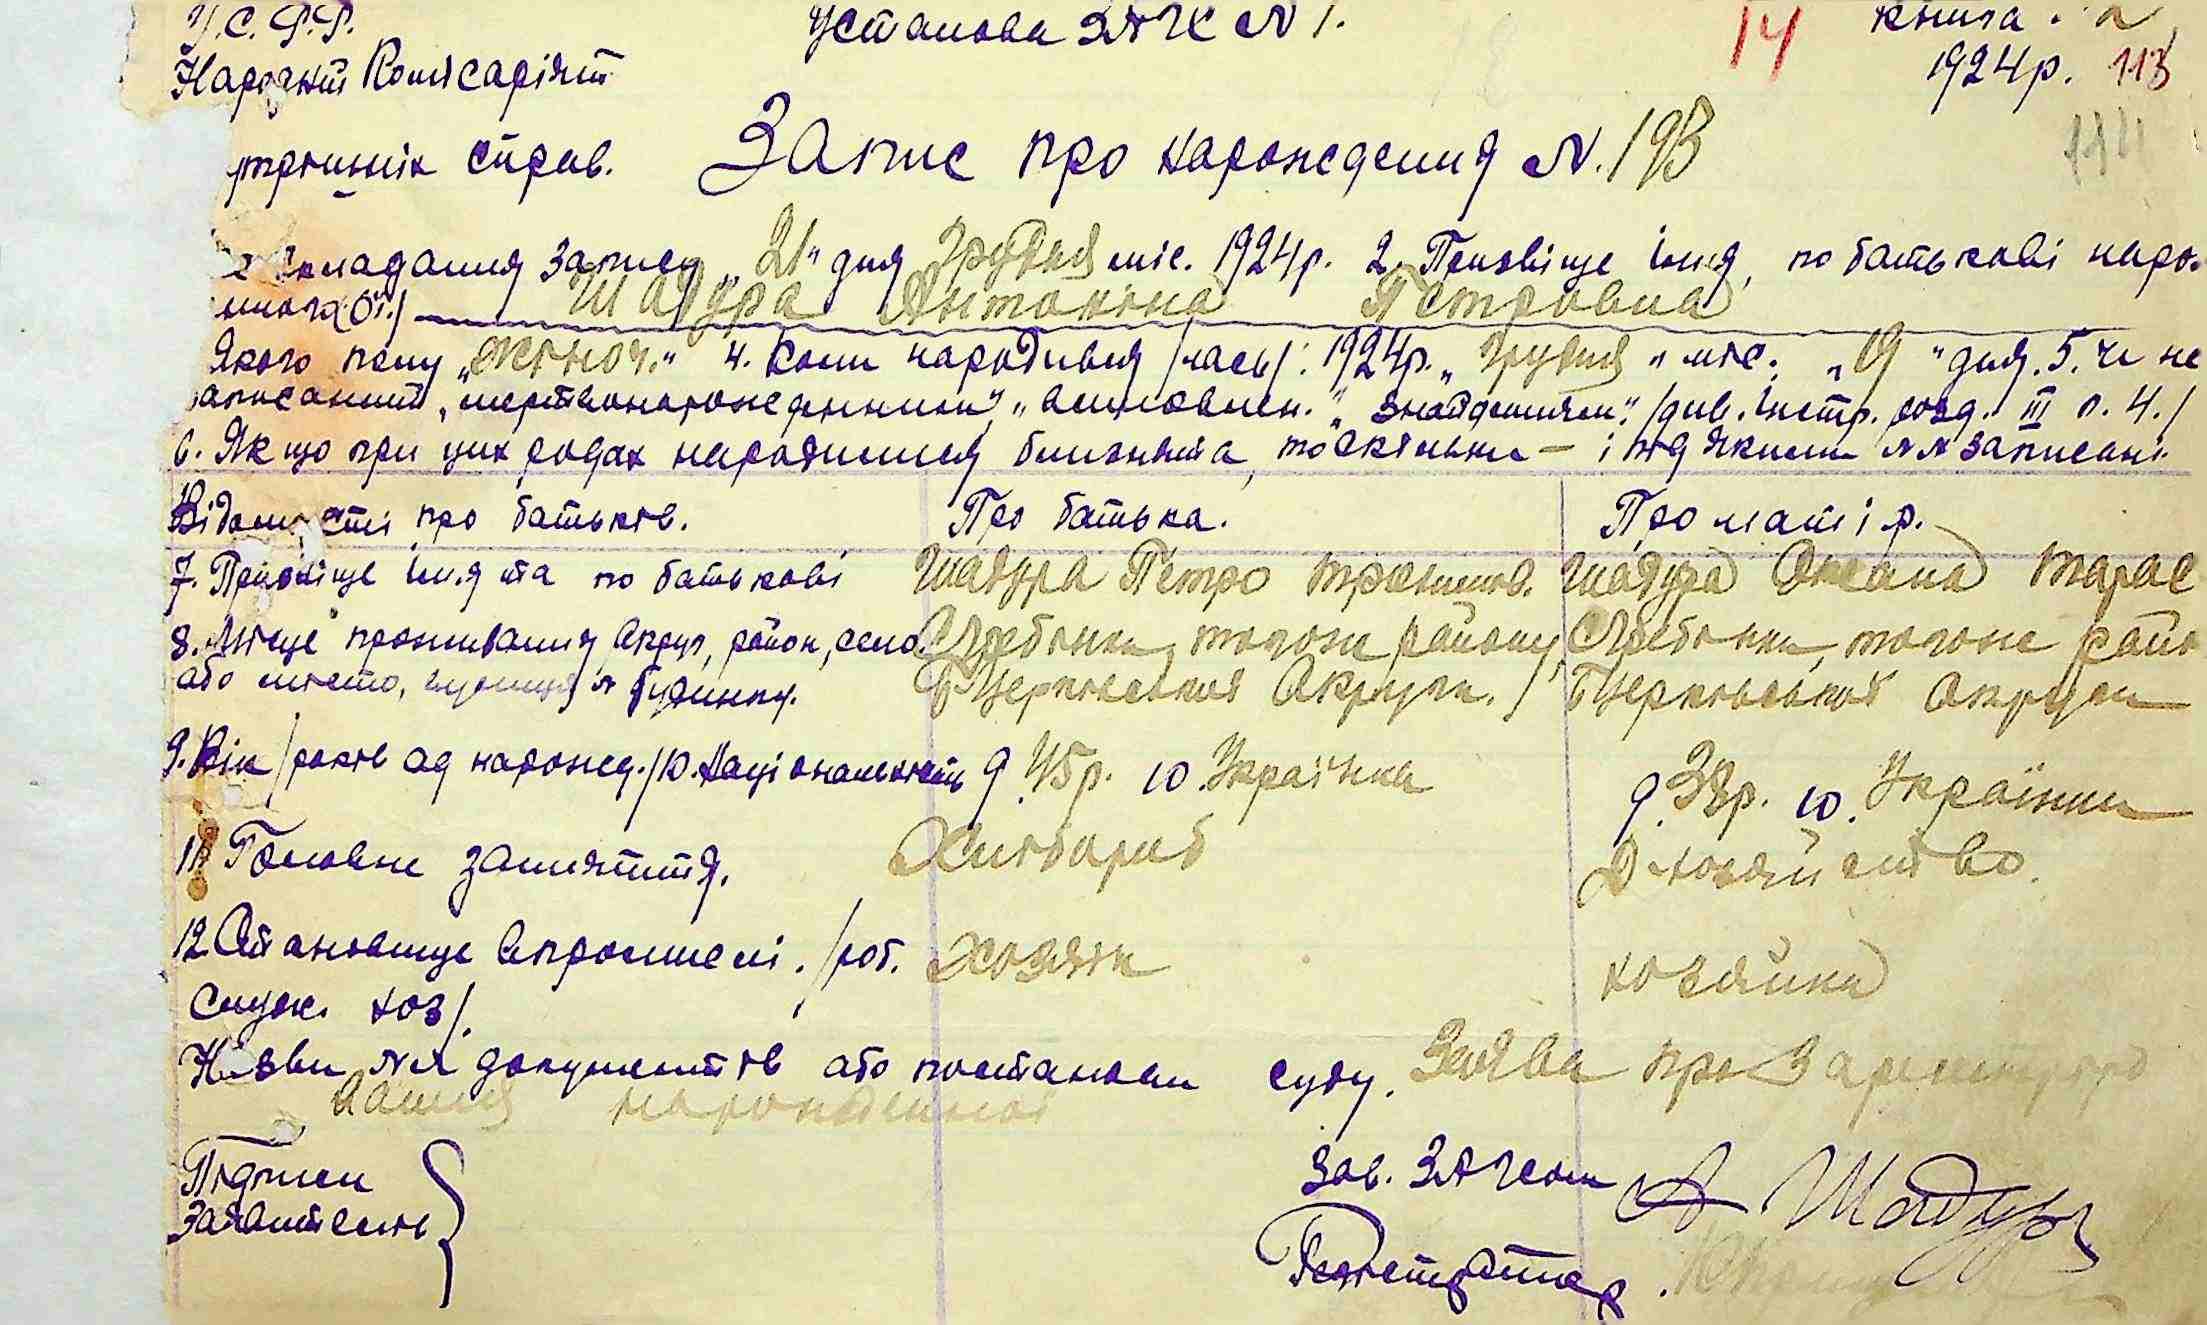 У.С.Р.Р. Установа ЗАГС № 1. 14 Книга 2
Народній Комісаріят 1924р. 113
внутрішніх справ. Запис про народження №.193 114
складання запису „21“ дня Грудня міс. 1924р. 2. Прізвіще імя, по батькові наро-
Шадура Антоніна Петровна
Якого полу „жіноч.“ 4. Коли народився /лась/: 1924р. „Грудня“ міс. „9“ дня. 5. Чи не
записаний „мертвонародженним“, „виновлен.“, „знайденишем“. /див. інстр. розд. III п. 4./
6. Якщо при цих родах народилися близнята, то скільки — і під якими №№ записані
Відомості про батьків. Про батька. Про матір.
7. Прізвіще імя та по батькові Шадура Петро Шадура Оксана Тарас
8. Місце проживання округ, район, село Гребінки, тогож району, Гребінки, тогож райо
або місто, вулиця № будинку. Бѣцерківської Округи. / Бѣцерківської Округи
9. Вік /років од народж./ 10. Національність 9. 45р. 10. Українец 9. 38р. 10. Українка
11 Головне заняття. Хлібороб Д-хозяйство.
12. Становище в промислі. /роб. Хозяін хозяйка
служ. хоз/.
Назви №№ документів або постанови суду. Заява про зареєстру
вання народження
Підписи Зав. ЗАГСом А Шадура
Заявителів Реєстратор